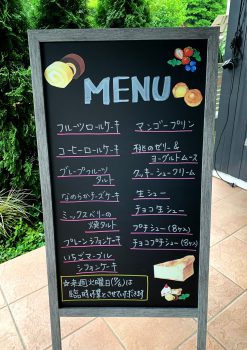 MENU
フルーツロールケーキ
コーヒーロールケーキ
グレープフルーツ
タルト
なめらかチーズケーキ
ミックスベリーの
焼タルト
プレーンシフォンケーキ
いちごマーブル
シフォンケーキ
マンゴープリン
桃のゼリー&
ヨーグルトムース
クッキーシュークリーム
生シュー
チョコ生シュー
プチシュー(8ヶ入)
チョコプチシュー(8ヶ入)
来週火曜日
臨時休業とさせていただきます